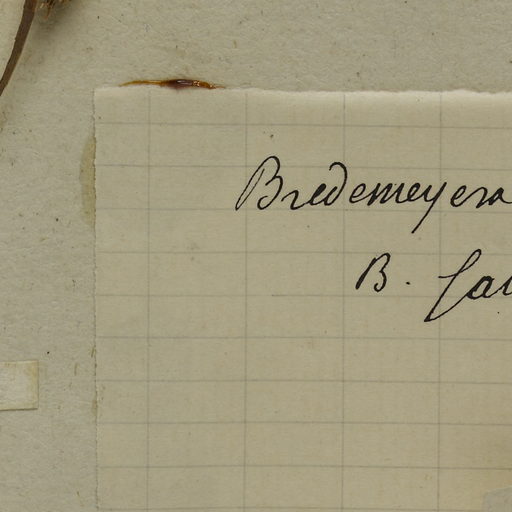 Bredemeyera
B.